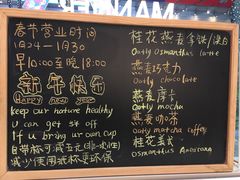 春节营业时间
1月24-1月30
早10:00至晚18:00
新年快乐
HAPPY NEW YEAR
keep our nature healthy
u can get $4 off
If u bring ur own cup
自带杯可减五元(非冰滴)
减少使用纸杯是环保
桂花燕麦拿铁/澳白
Oatly Osmanthus latte
燕麦巧克力
Oatly chocolate
燕麦摩卡
Oatly mocha
燕麦抹茶
Oatly matcha coffee
桂花美式
Osmanthus Americano